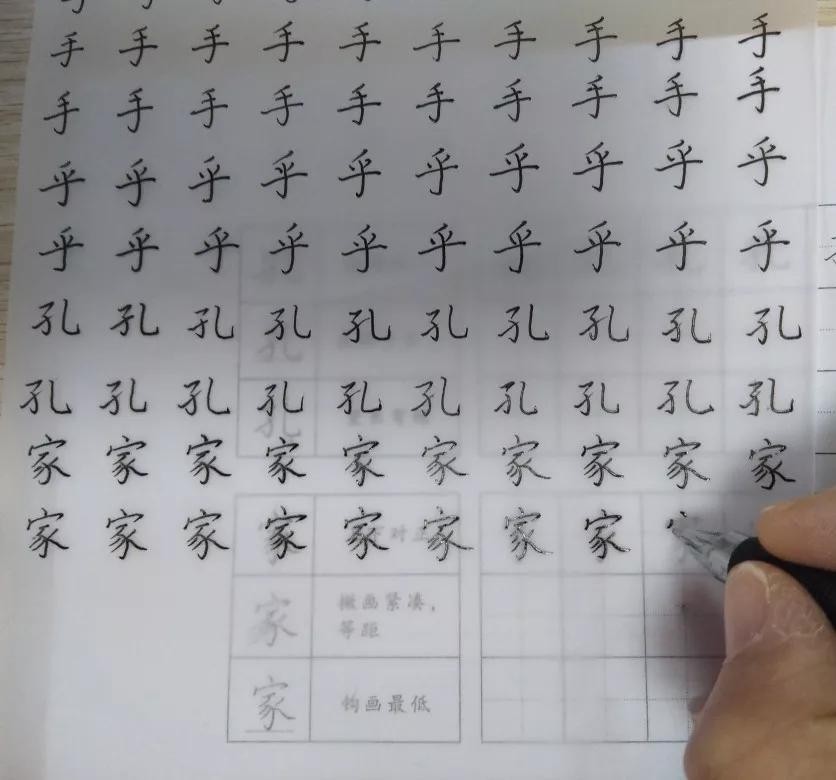 手 手 手 手 手 手 手 手 手 手
手 手 手 手 手 手 手 手 手 手
乎 乎 乎 乎 乎 乎 乎 乎 乎 乎
乎 乎 乎 乎 乎 乎 乎 乎 乎 乎
孔 孔 孔 孔 孔 孔 孔 孔 孔 孔
孔 孔 孔 孔 孔 孔 孔 孔 孔 孔
家 家 家 家 家 家 家 家 家 家
家 家 家 家 家 家 家 家
对正
家 撇画紧凑,
等距
家 钩画最低